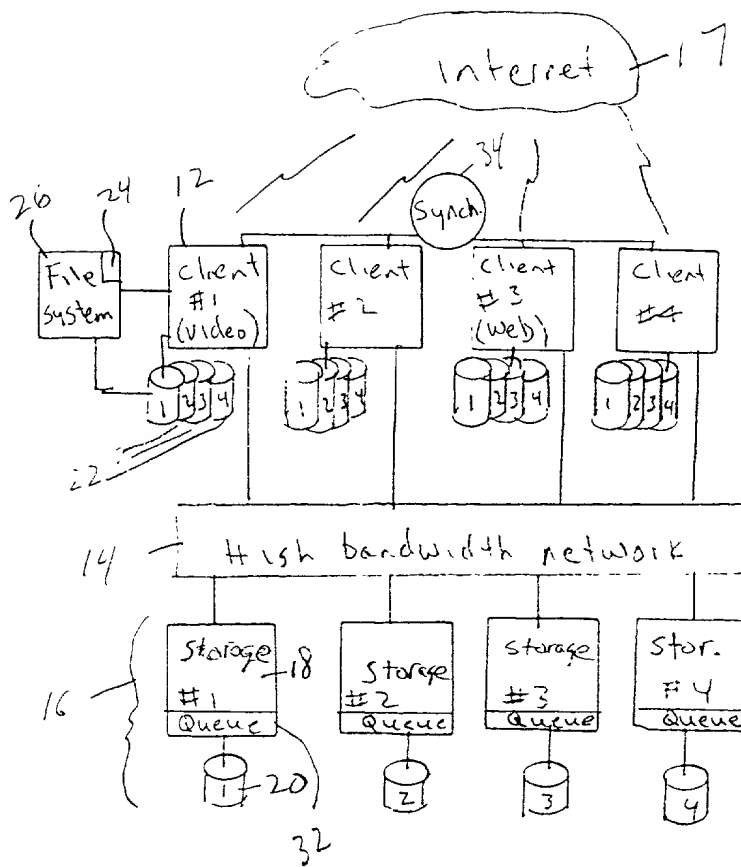 Internet 17
34
26 24 12
Synch.
File system
client #1 (video)
client #2
client #3 (web)
client #4
1 2 3 4
1 2 3 4
1 2 3 4
1 2 3 4
22
14
High bandwidth network
16
Storage #1
18
Storage #2
storage #3
Stor. #4
Queue
Queue
Queue
Queue
1
20
2
3
4
32